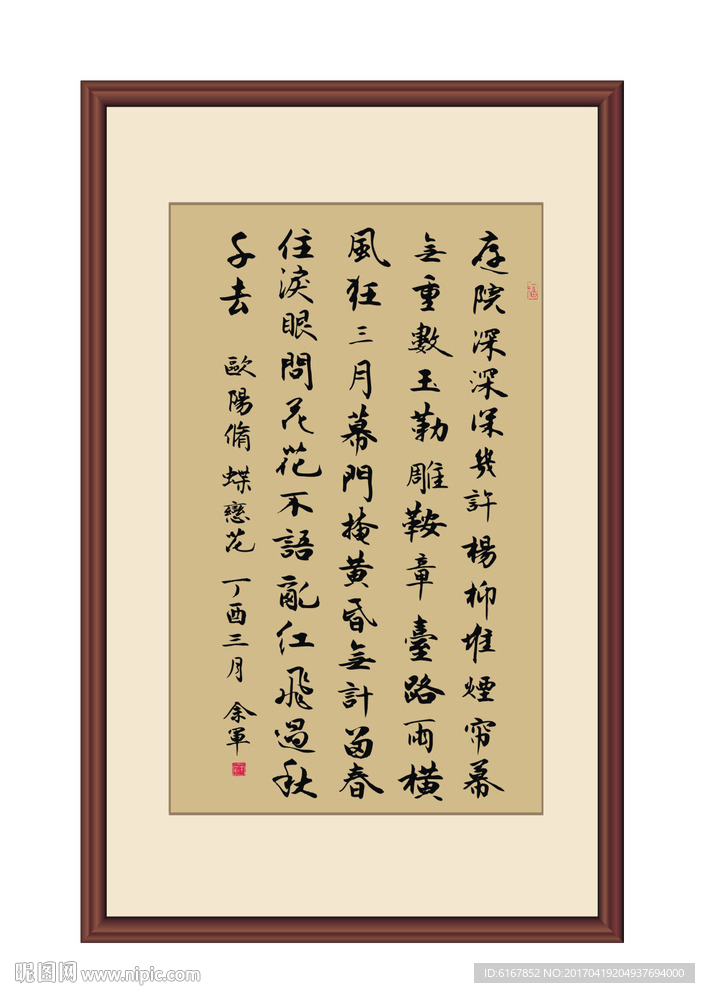 庭院深深深幾許楊柳堆煙帘幕
無重數玉勒雕鞍章臺路雨橫
風狂三月幕門掩黃昏無計留春
住淚眼問花花不語亂紅飛過秋
千去 歐陽脩 蝶戀花 丁酉三月 余軍
昵图网 www.nipic.com
ID:6167852 NO:20170419204937694000